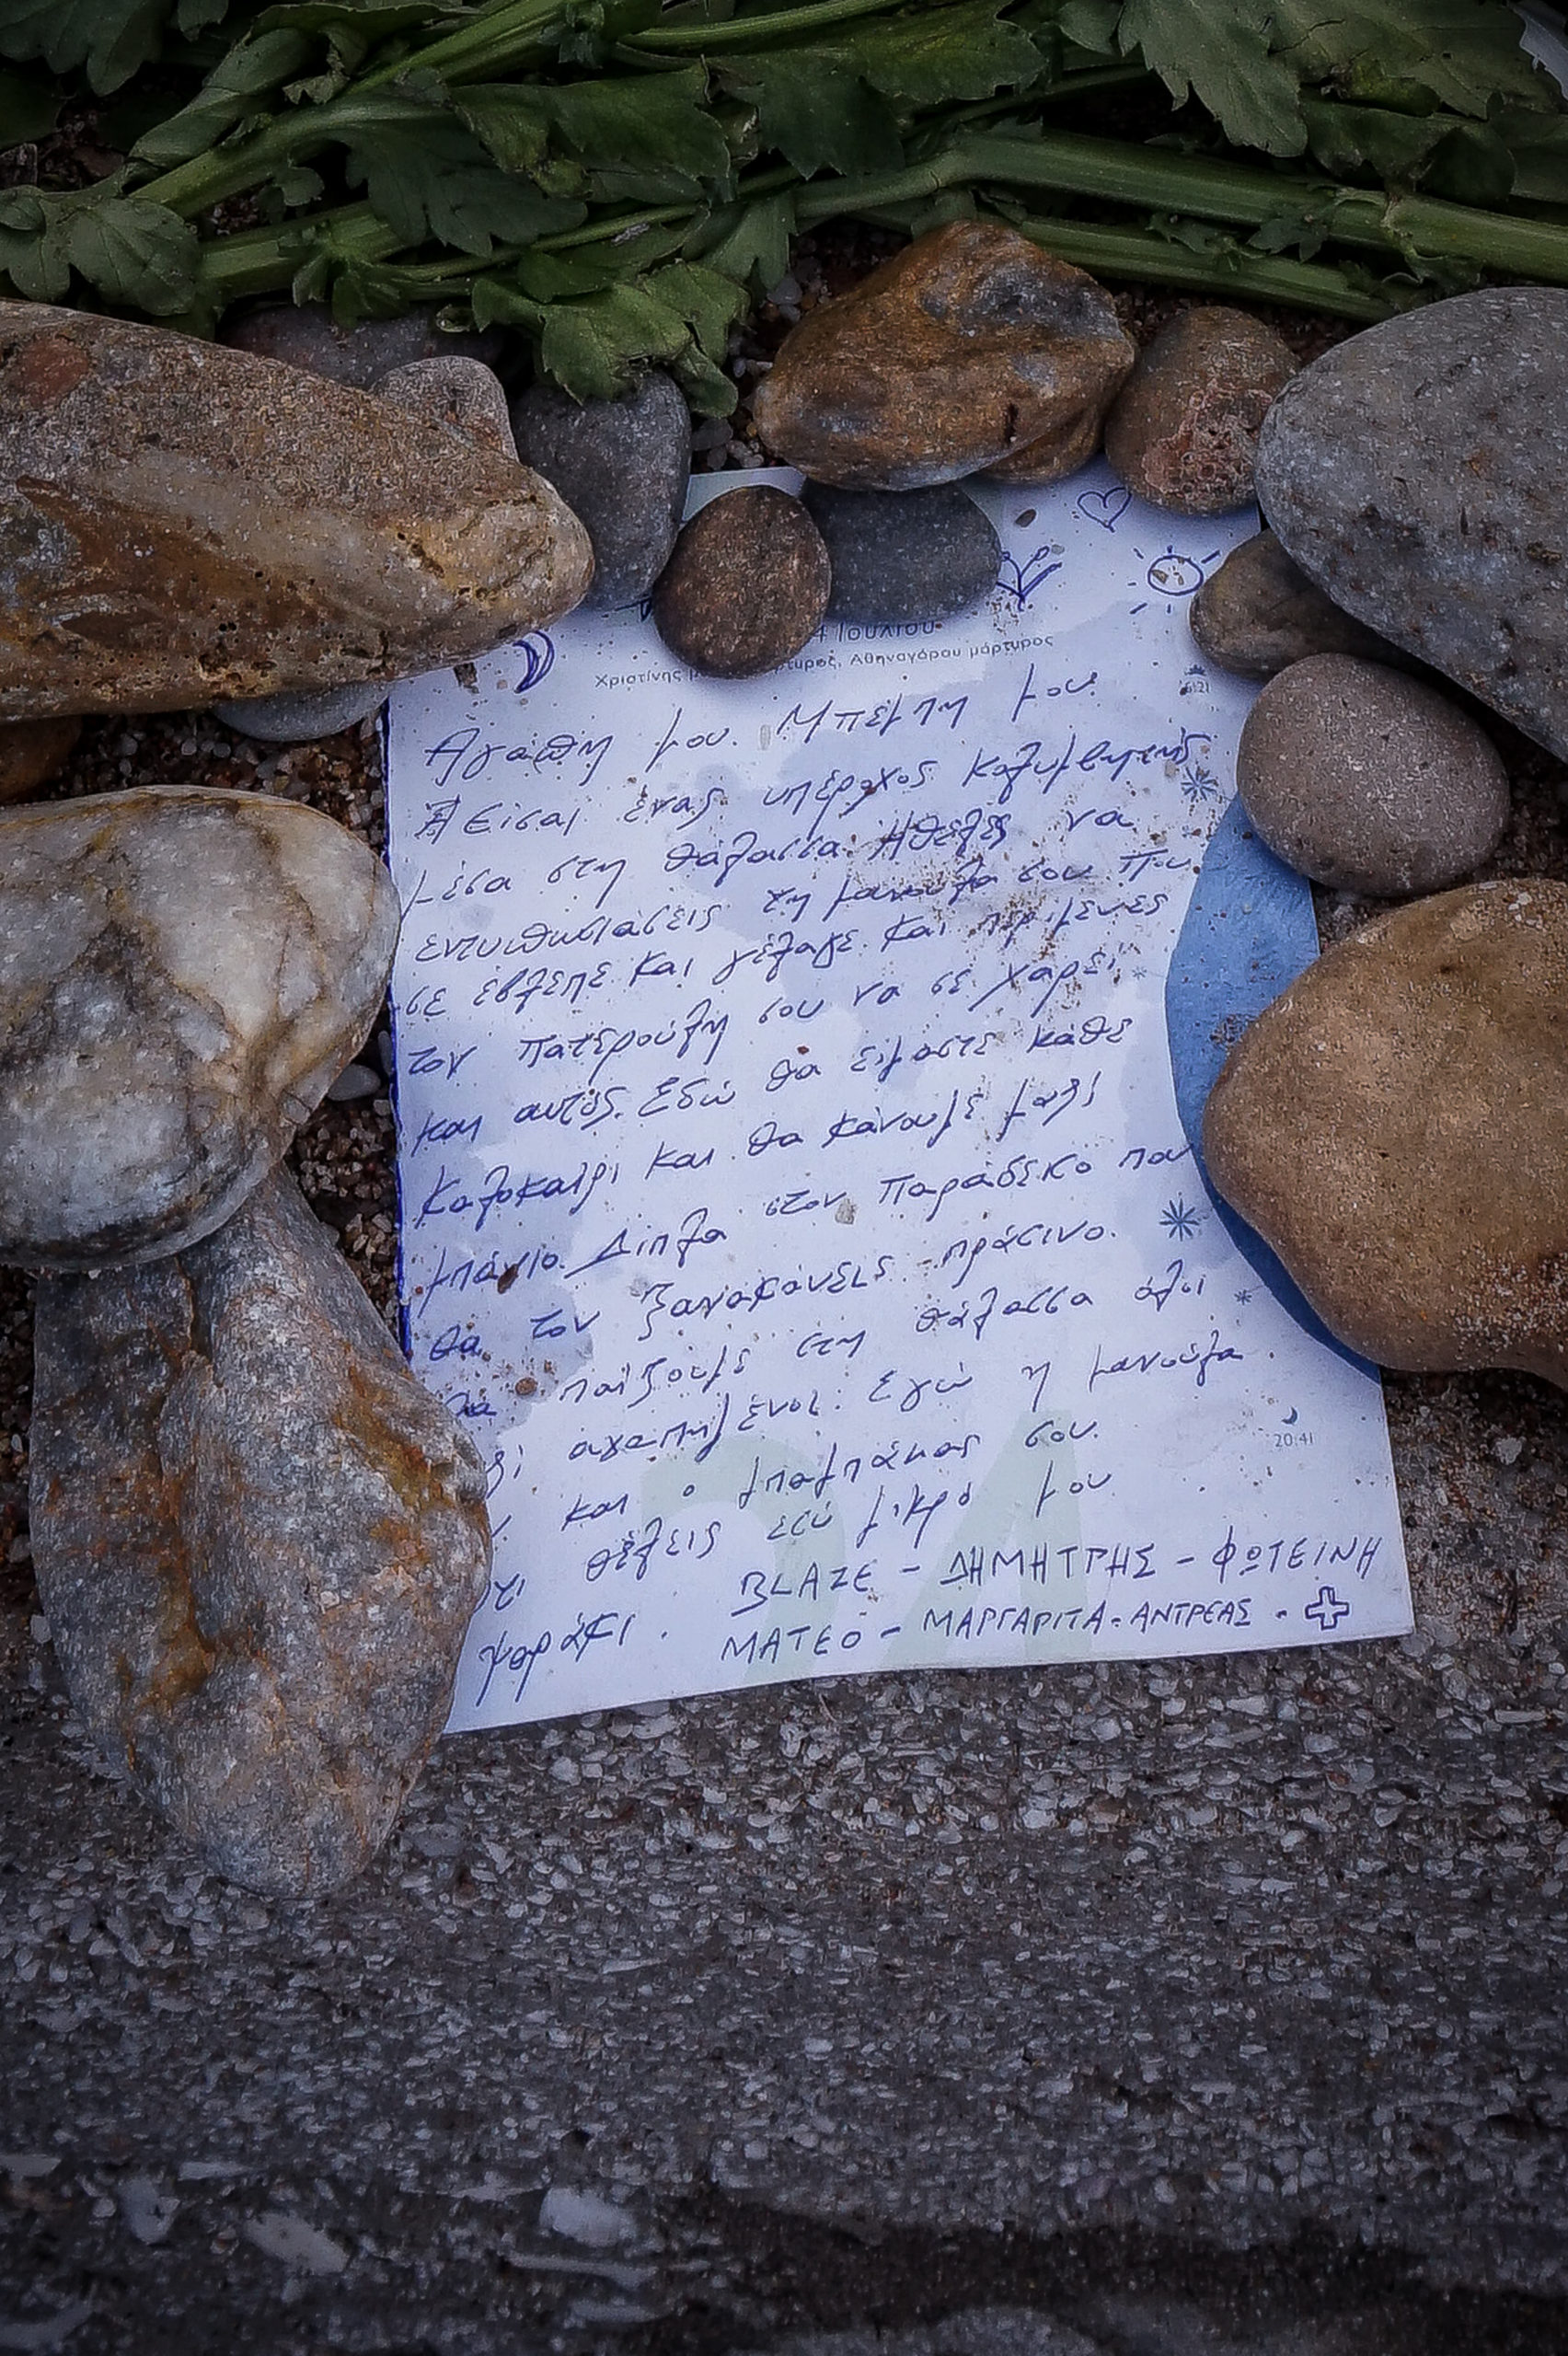 4 Ιουλίου
Χριστίνης μ τυρος, Αθηναγόρου μάρτυρος
6:21
Αγάπη μου. Μπέμπη μου.
Είσαι ένας υπέροχος κολυμβητής
μέσα στη θάλασσα. Ήθελες να
εντυπωσιάσεις τη μανούλα σου που
σε έβλεπε και γέλαγε. Και περίμενες
τον πατερούλη σου να σε χαρεί
και αυτός. Εδώ θα είμαστε κάθε
καλοκαίρι και θα κάνουμε μαζί
μπάνιο. Δίπλα στον Παράδεισο που
θα τον ξανακάνεις πράσινο.
Θα παίξουμε στη θάλασσα όλοι
ζί αγαπημένοι. Εγώ η μανούλα.
και ο μπαμπάκας σου.
20:41
τι θέλεις εσύ μικρό μου
ψαράκι.
BLAZE - ΔΗΜΗΤΡΗΣ - ΦΩΤΕΙΝΗ
ΜΑΤΕΟ - ΜΑΡΓΑΡΙΤΑ - ΑΝΤΡΕΑΣ -
24